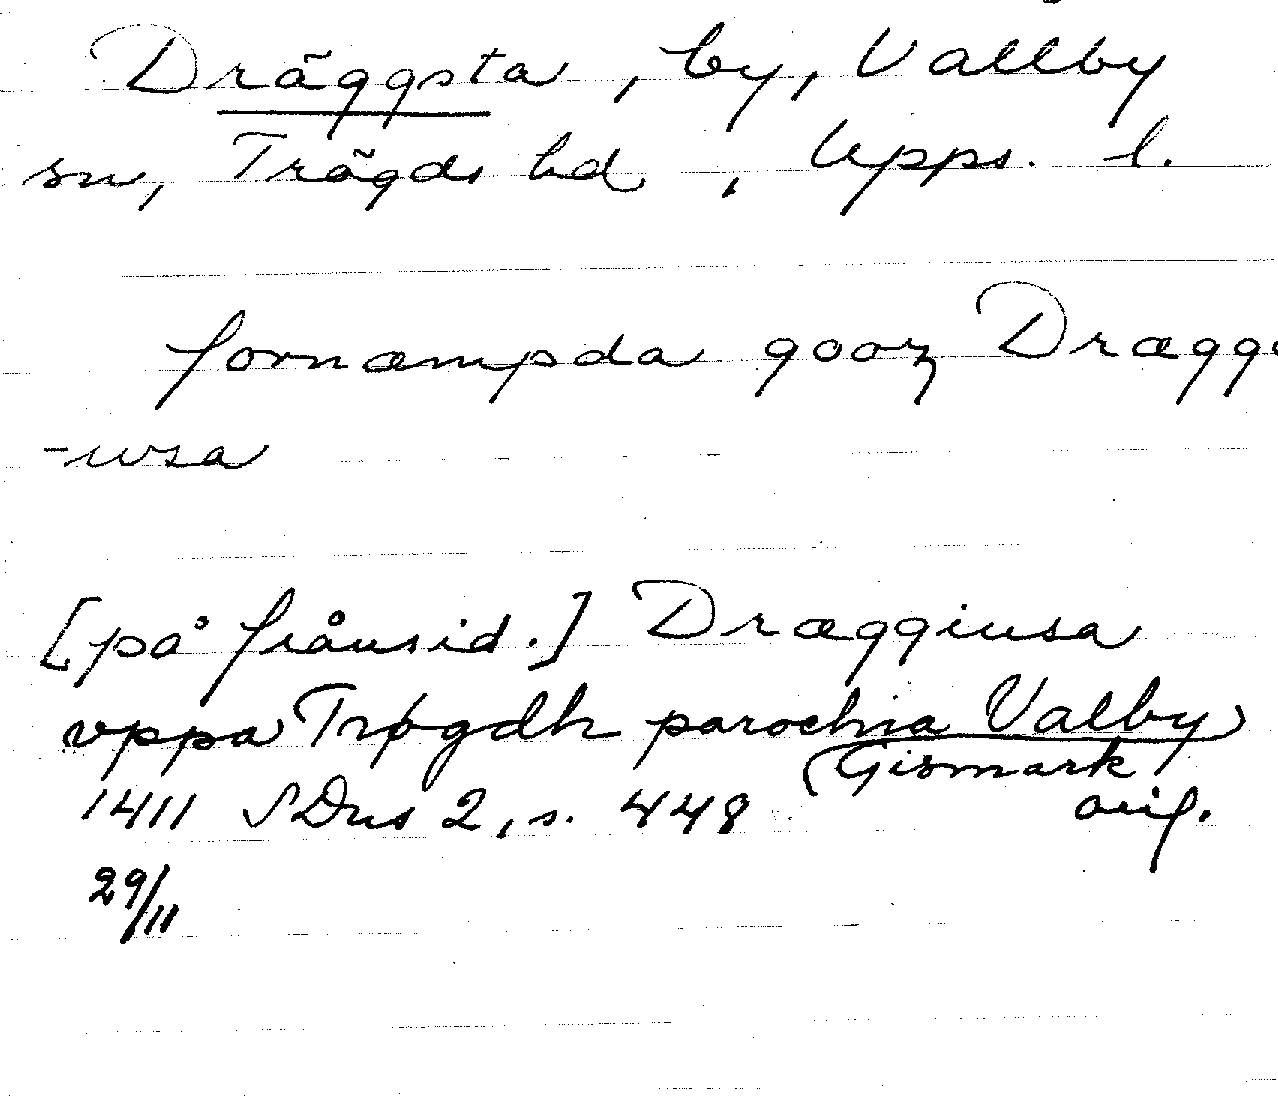 Dräggsta, by, Vallby
sn, Trögds hd, Upps. l.
fornæmpda gooz Drægg
-wsa
[på frånsid.] Dræggiusa
vppa Trøgdh parochia Valby
Gismark
1411 SDns 2, s. 448 orig.
29/11